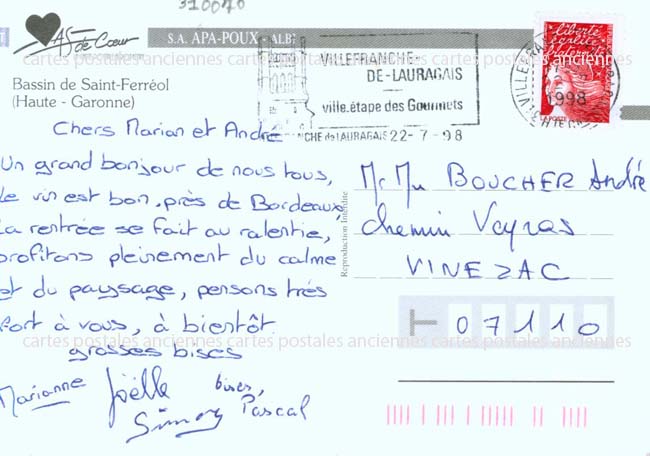 310070
As de Cœur
S.A. APA-POUX - ALBI
Bassin de Saint-Ferréol
(Haute - Garonne)
VILLEFRANCHE-
DE-LAURAGAIS
ville.étape des Gourmets
NCHE de LAURAGAIS 22-7-98
1998
liberté
égalité
LA POSTE
cartes postales anciennes cartes postales anciennes cartes postales anciennes
Chers Marian et André
Un grand bonjour de nous tous,
le vin est bon, près de Bordeaux,
la rentrée se fait au ralentie,
profitons pleinement du calme
et du paysage, pensons très
fort à vous, à bientôt.
grosses bises
Marianne Joëlle bises,
Simon Pascal
Reproduction Interdite
BOUCHER André
chemin Veyras
VINEZAC
07110
cartes postales anciennes cartes postales anciennes cartes postales anciennes